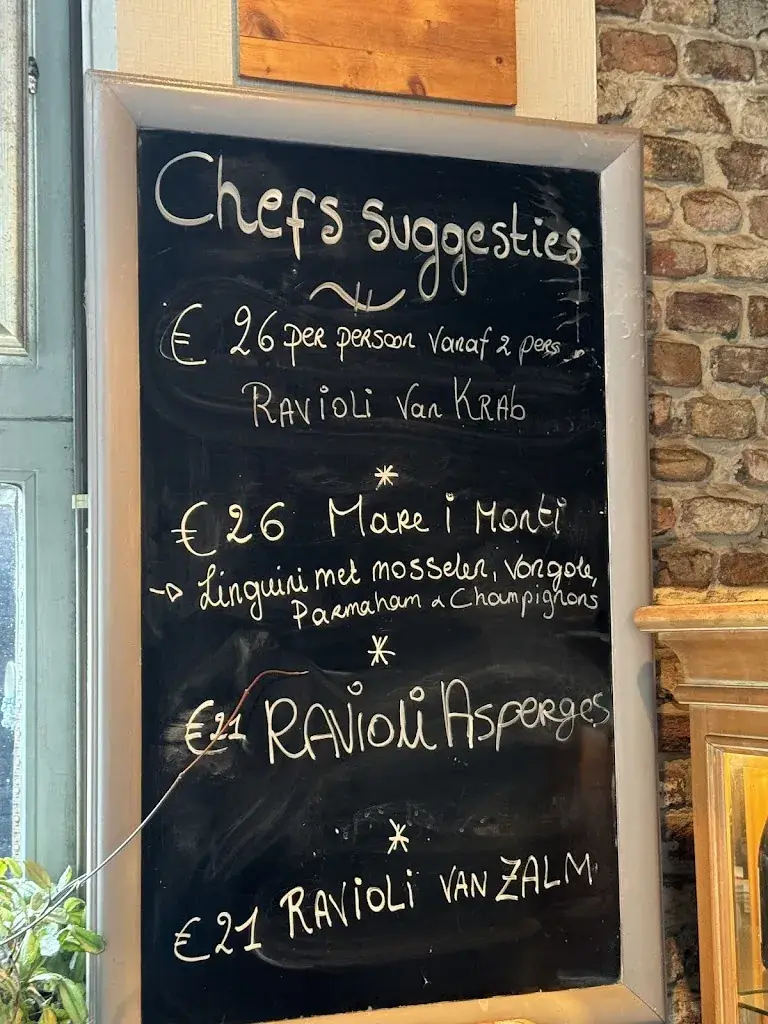 Chefs suggesties
€ 26 per persoon vanaf 2 pers
Ravioli van Krab
*
€ 26 Mare i Monti
→ Linguini met mosselen, vongole,
Parmaham & Champignons
*
€21 Ravioli Asperges
*
€21 Ravioli van Zalm